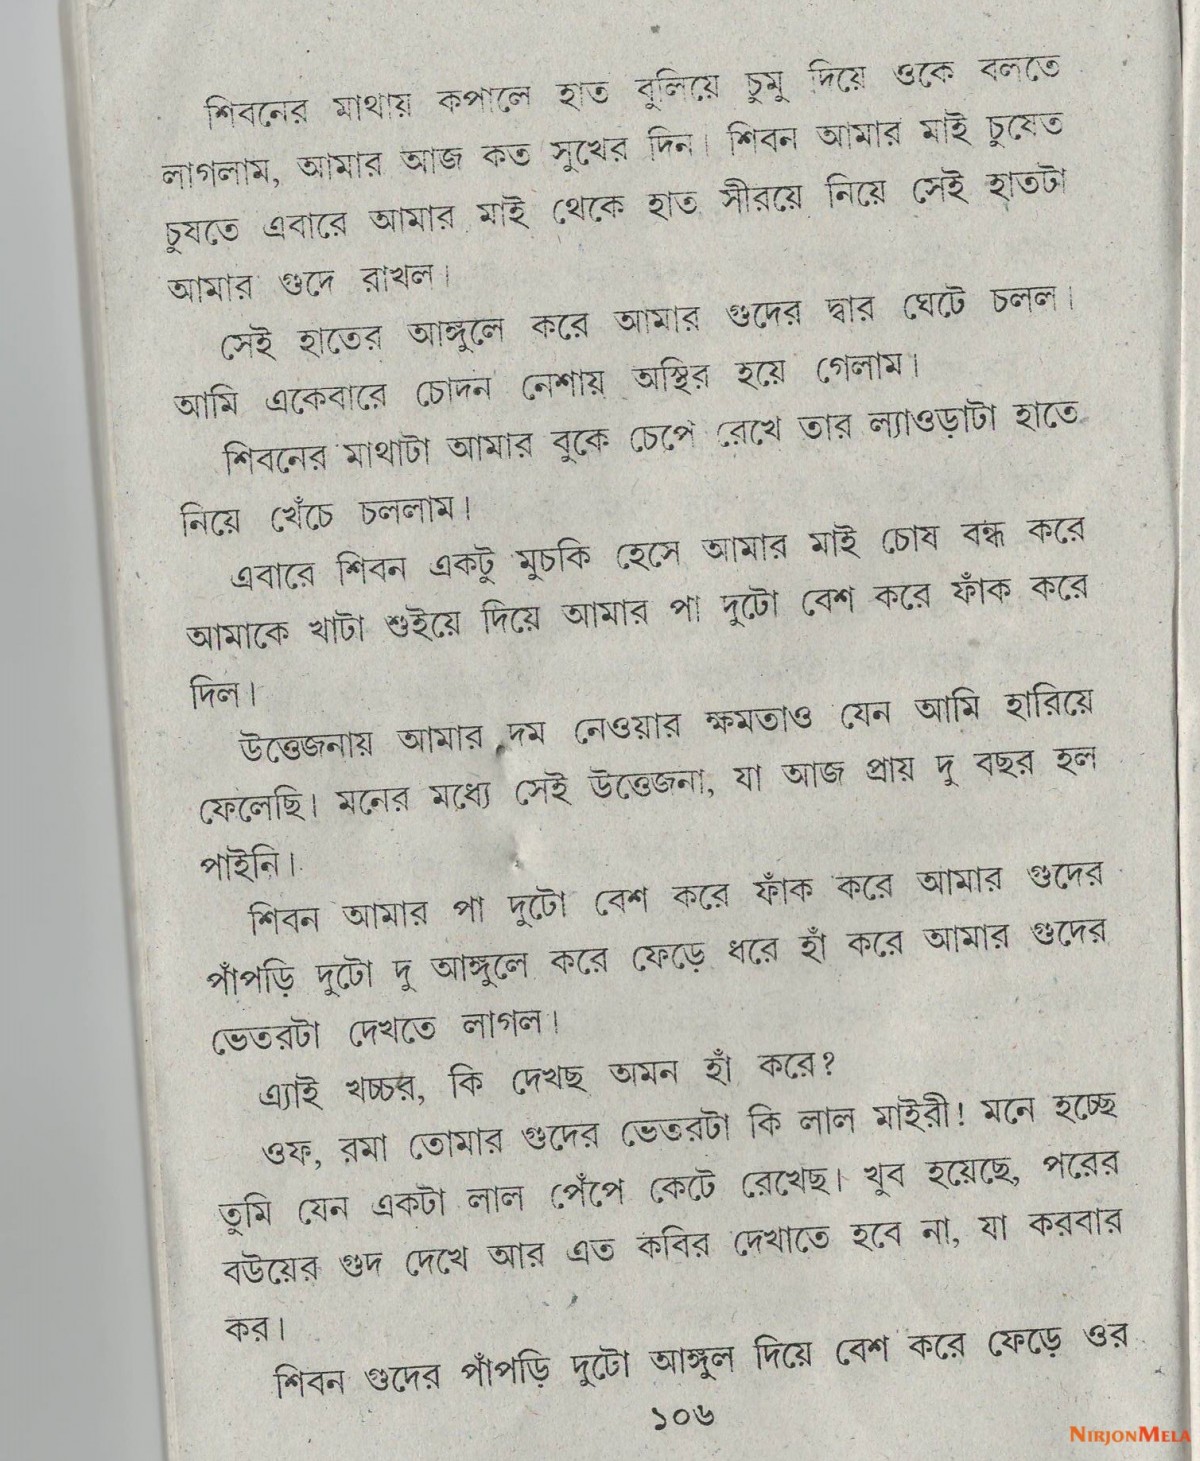 শিবনের মাথায় কপালে হাত বুলিয়ে চুমু দিয়ে ওকে বলতে
লাগলাম, আমার আজ কত সুখের দিন। শিবন আমার মাই চুষেত
চুষতে এবারে আমার মাই থেকে হাত সীরয়ে নিয়ে সেই হাতটা
আমার গুদে রাখল।
সেই হাতের আঙ্গুলে করে আমার গুদের দ্বার ঘেটে চলল।
আমি একেবারে চোদন নেশায় অস্থির হয়ে গেলাম।
শিবনের মাথাটা আমার বুকে চেপে রেখে তার ল্যাওড়াটা হাতে
নিয়ে খেঁচে চললাম।
এবারে শিবন একটু মুচকি হেসে আমার মাই চোষ বন্ধ করে
আমাকে খাটা শুইয়ে দিয়ে আমার পা দুটো বেশ করে ফাঁক করে
দিল।
উত্তেজনায় আমার দম নেওয়ার ক্ষমতাও যেন আমি হারিয়ে
ফেলেছি। মনের মধ্যে সেই উত্তেজনা, যা আজ প্রায় দু বছর হল
পাইনি।
শিবন আমার পা দুটো বেশ করে ফাঁক করে আমার গুদের
পাঁপড়ি দুটো দু আঙ্গুলে করে ফেড়ে ধরে হাঁ করে আমার গুদের
ভেতরটা দেখতে লাগল।
এ্যাই খচ্চর, কি দেখছ অমন হাঁ করে?
ওফ, রমা তোমার গুদের ভেতরটা কি লাল মাইরী! মনে হচ্ছে
তুমি যেন একটা লাল পেঁপে কেটে রেখেছ। খুব হয়েছে, পরের
বউয়ের গুদ দেখে আর এত কবির দেখাতে হবে না, যা করবার
কর।
শিবন গুদের পাঁপড়ি দুটো আঙ্গুল দিয়ে বেশ করে ফেড়ে ওর
১০৬
NIRJONMELA